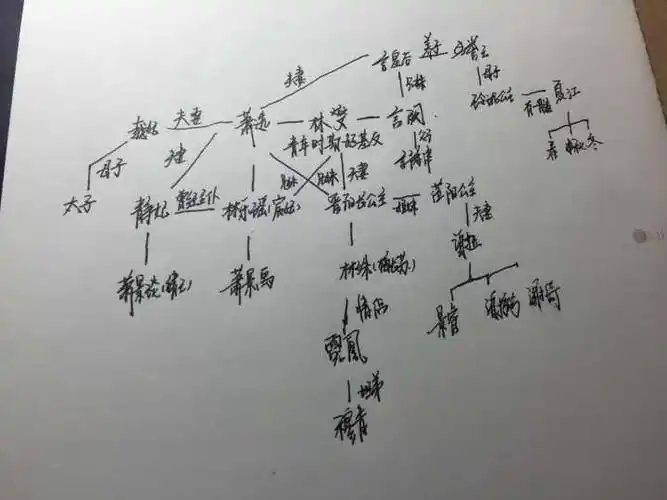 言皇后 养子 誉王
夫妻
兄妹
母子
玲珑公主 — 有雠 夏江
越妃 夫妻 萧选 — 林燮 — 言阙
青年时期好基友
父子
言豫津
母子
太子
春 秋 冬
兄妹
兄妹
夫妻
静妃
林乐瑶(宸妃)
晋阳长公主 — 姐妹 莅阳公主
夫妻
谢玉
萧景琰(靖王)
萧景禹
林殊(梅长苏)
情侣
景睿
谢弼
霓凰
姐弟
穆青